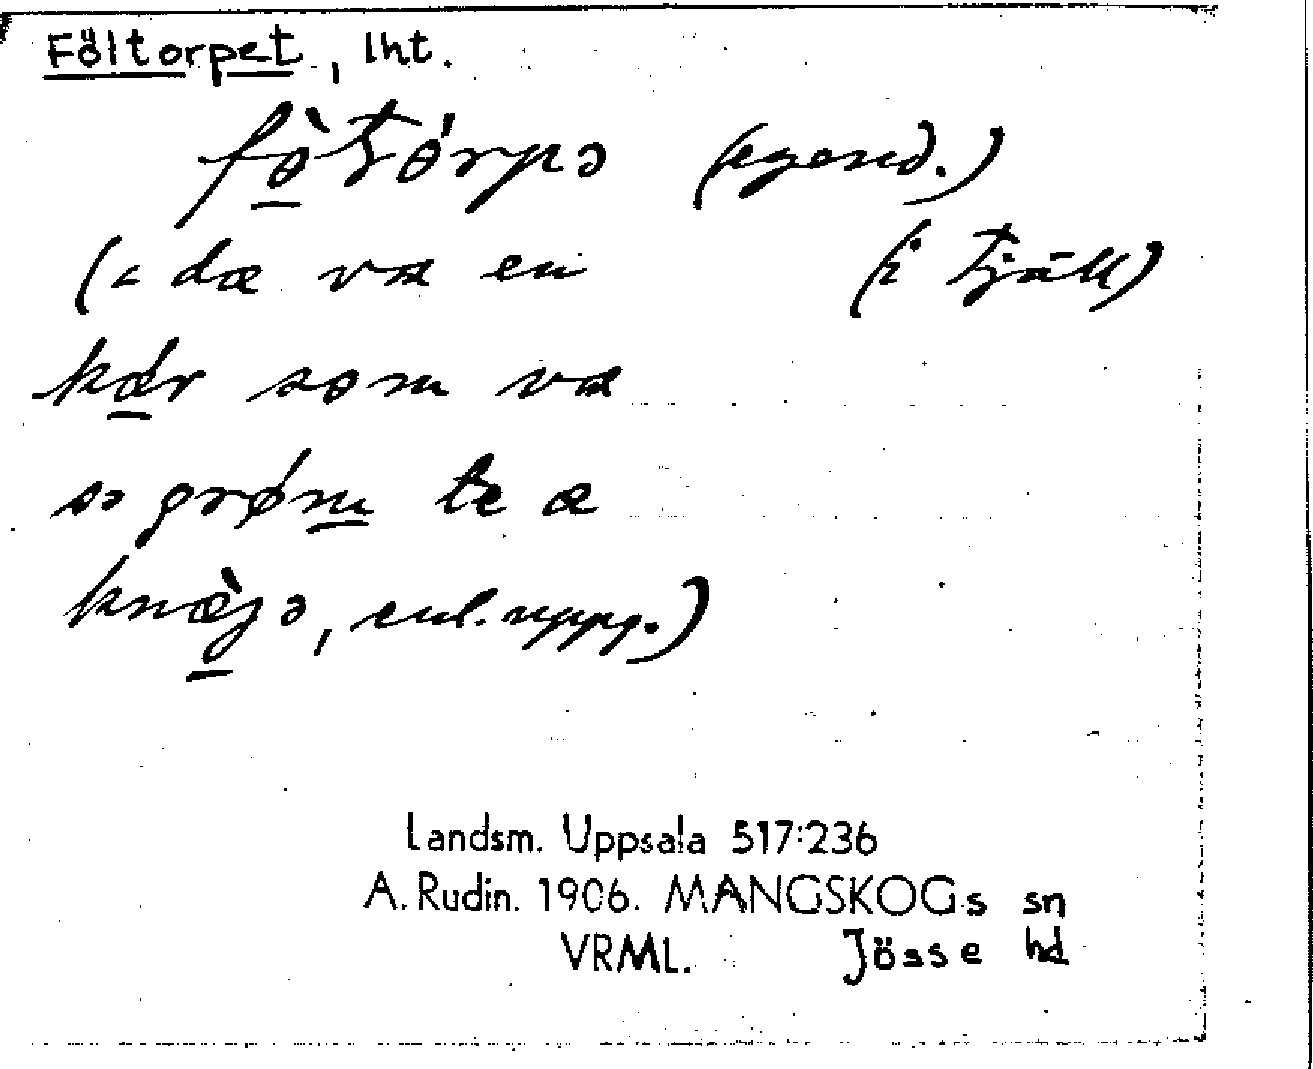 Föltorpet, lht.
fò̱tórpə (egend.)
(= dæ va en (i Fjäll)
kár som va
sə grøm te æ
knæ̀jə, enl. uppg.)
Landsm. Uppsala 517:236
A. Rudin. 1906. MANGSKOGs sn
VRML. Jösse hd